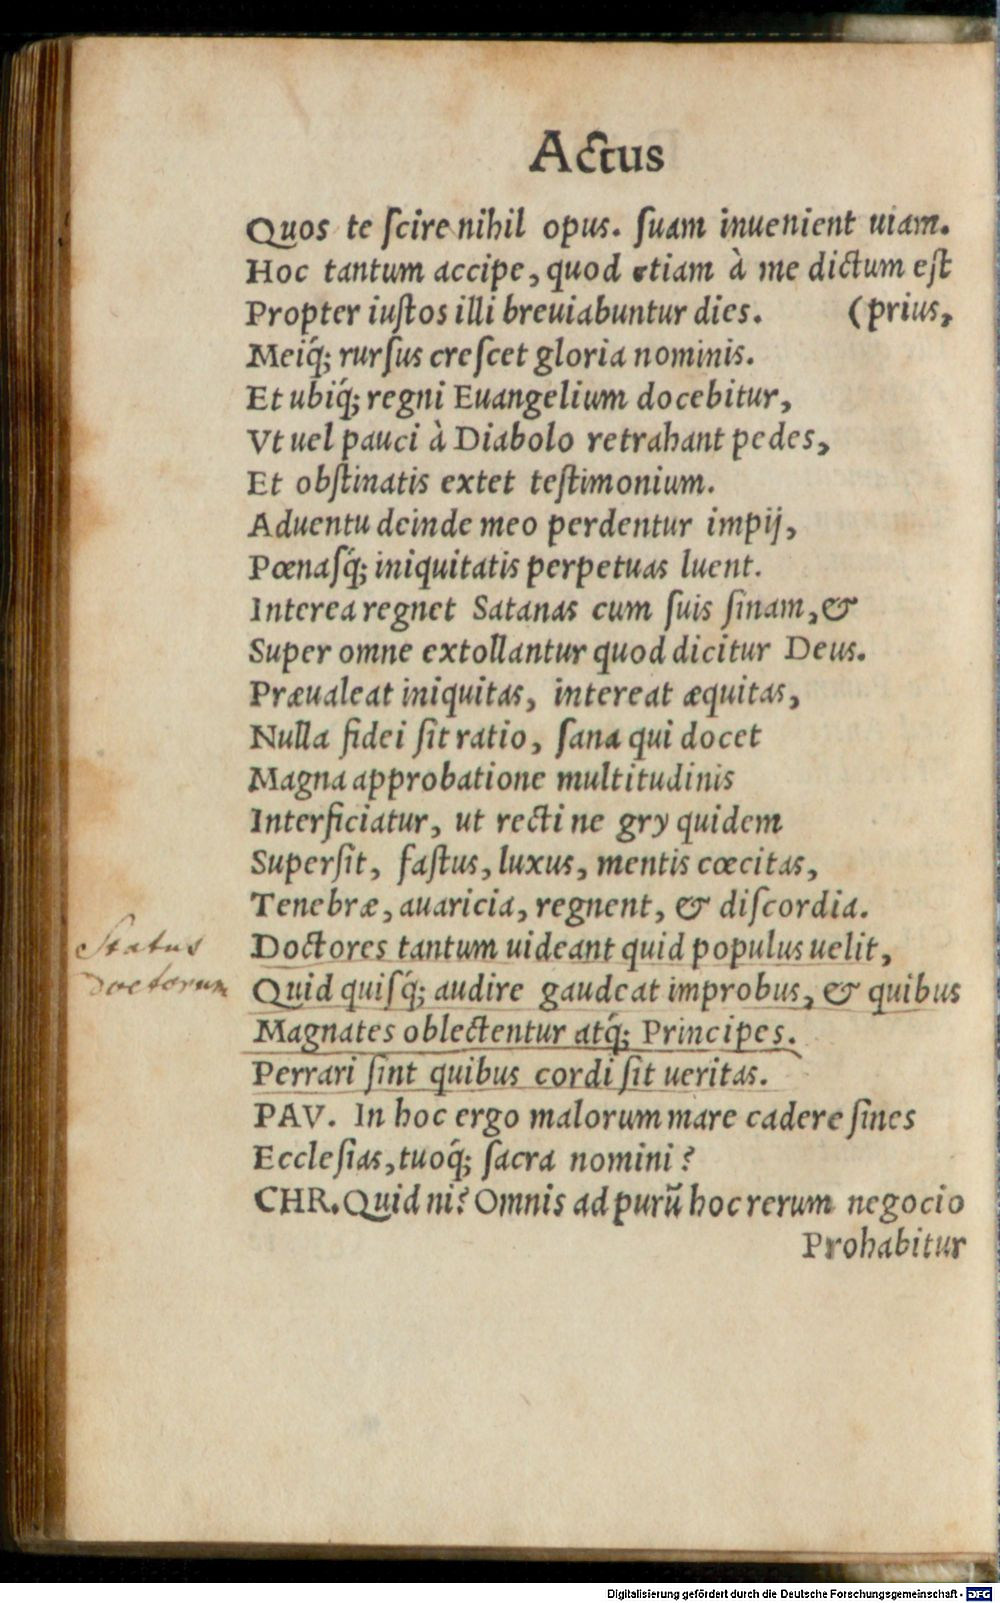 Actus
Quos te ſcire nihil opus. ſuam inuenient uiam.
Hoc tantum accipe, quod etiam à me dictum eſt
Propter iuſtos illi breuiabuntur dies. (prius,
Meiq́; rurſus creſcet gloria nominis.
Et ubiq́; regni Euangelium docebitur,
Vt uel pauci à Diabolo retrahant pedes,
Et obſtinatis extet teſtimonium.
Aduentu deinde meo perdentur impij,
Pœnaſq́; iniquitatis perpetuas luent.
Interea regnet Satanas cum ſuis ſinam, &
Super omne extollantur quod dicitur Deus.
Præualeat iniquitas, intereat æquitas,
Nulla fidei ſit ratio, ſana qui docet
Magna approbatione multitudinis
Interficiatur, ut recti ne gry quidem
Superſit, faſtus, luxus, mentis cœcitas,
Tenebræ, auaricia, regnent, & diſcordia.
Status
Doctores tantum uideant quid populus uelit,
doctorum
Quid quiſq́; audire gaudeat improbus, & quibus
Magnates oblectentur atq́; Principes.
Perrari ſint quibus cordi ſit ueritas.
PAV. In hoc ergo malorum mare cadere ſines
Eccleſias, tuoq́; ſacra nomini?
CHR. Quid ni? Omnis ad purū hoc rerum negocio
Prohabitur
Digitalisierung gefördert durch die Deutsche Forschungsgemeinschaft - DFG